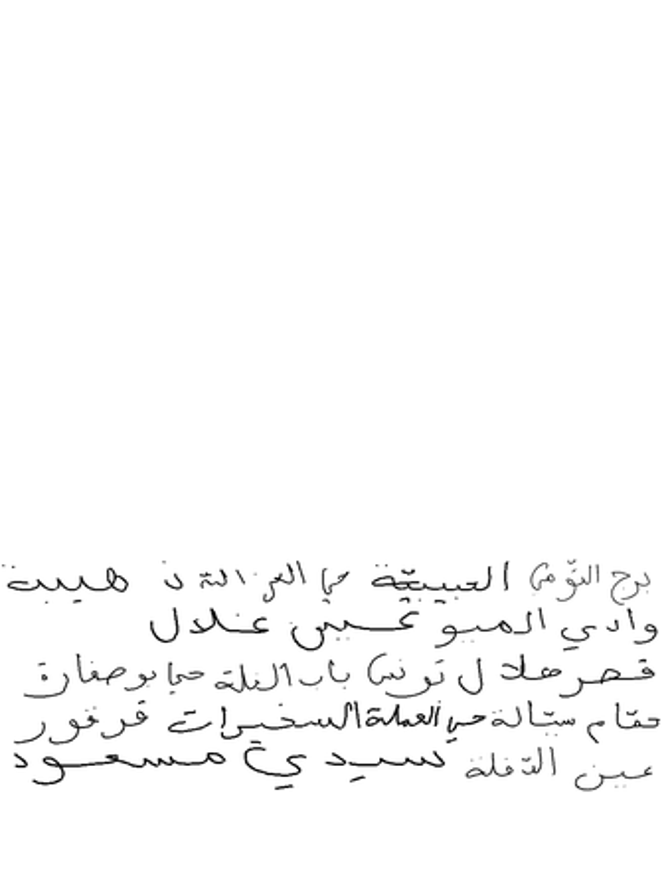 برج التومي العبيبيّة حي الغزالة ذهيبة
وادي الميو عين غلال
قصر هلال تونس باب الفلة حي بوصفارة
حمّام سيّالة حي العملة السخيرات قرقور
عين الدّفلة سيدي مسعود